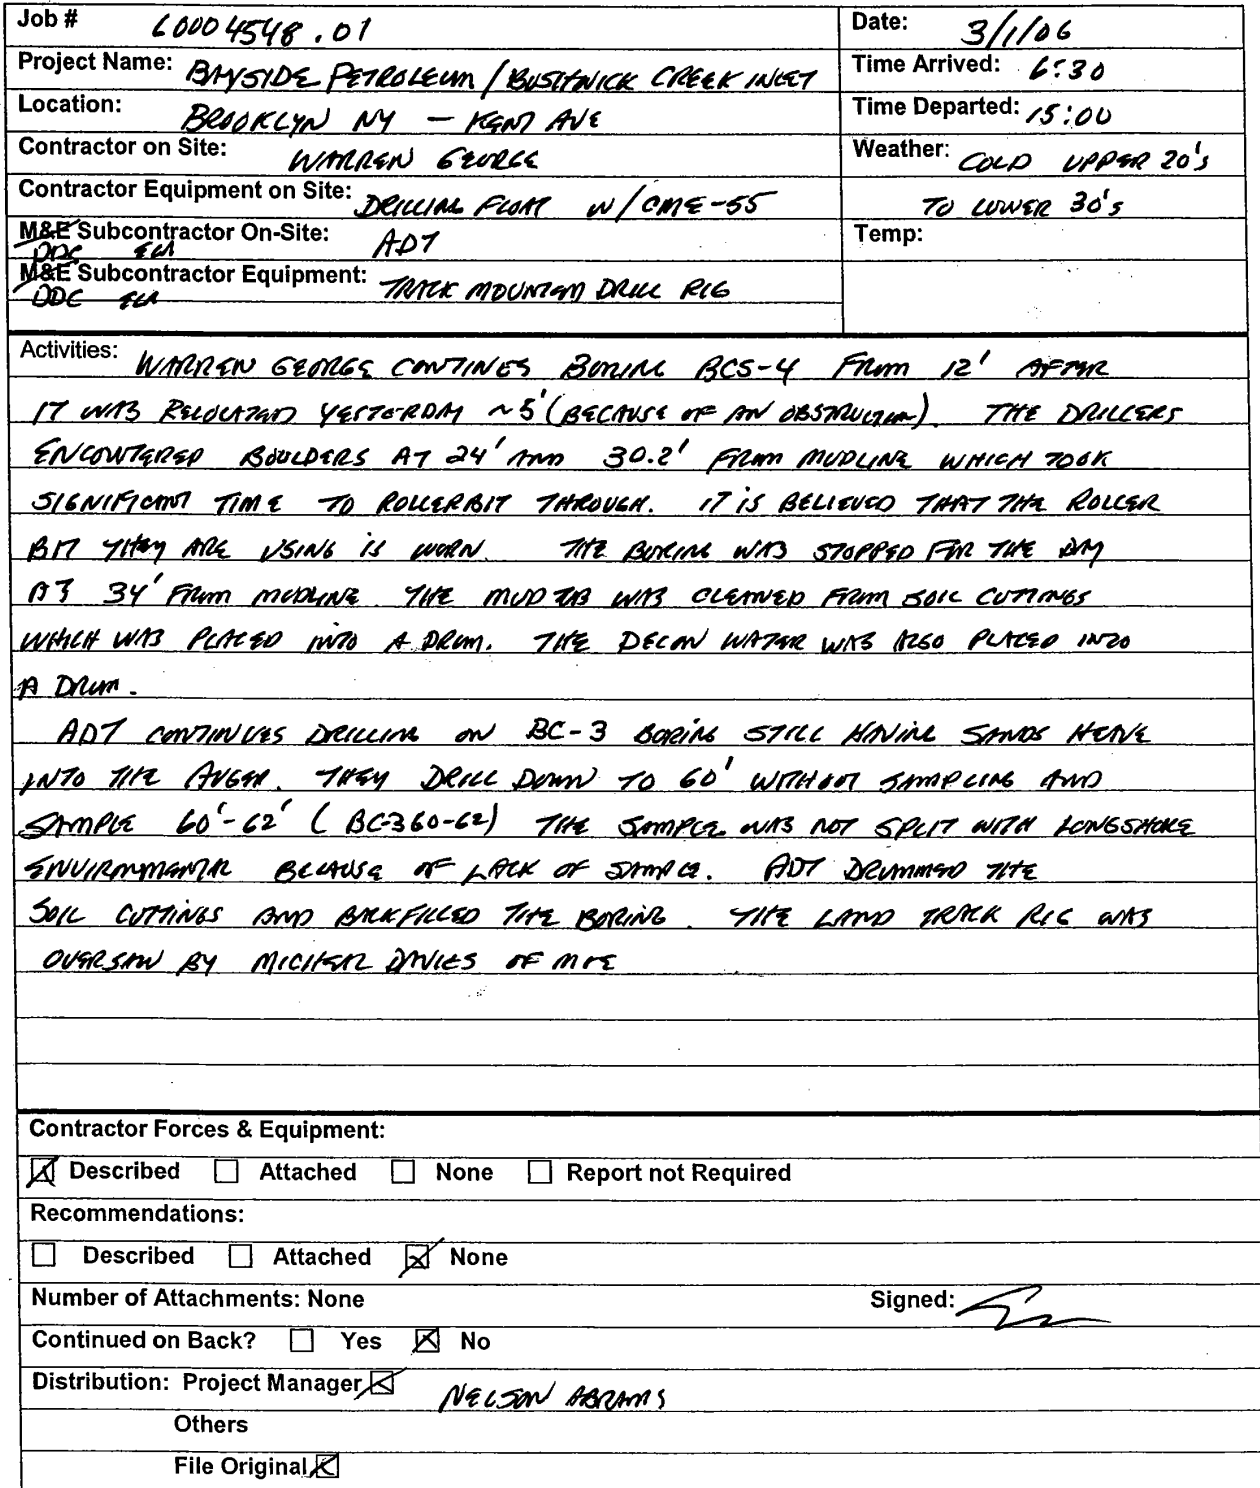 Job # 60004548.01
Date: 3/1/06
Project Name: BAYSIDE PETROLEUM / BUSHWICK CREEK INLET
Time Arrived: 6:30
Location: BROOKLYN NY - KENT AVE
Time Departed: 15:00
Contractor on Site: WARREN GEORGE
Weather: COLD UPPER 20's
Contractor Equipment on Site: DRILLING FLOAT W/ CME-55
TO LOWER 30's
M&E Subcontractor On-Site: ADT
DDC
Temp:
M&E Subcontractor Equipment: TRACK MOUNTED DRILL RIG
DDC
Activities: WARREN GEORGE CONTINES BORING BCS-4 FROM 12' AFTER
IT WAS RELOCATED YESTERDAY ~5' (BECAUSE OF AN OBSTRUCTION). THE DRILLERS
ENCOUNTERED BOULDERS AT 24' AND 30.2' FROM MUDLINE WHICH TOOK
SIGNIFICANT TIME TO ROLLERBIT THROUGH. IT IS BELIEVED THAT THE ROLLER
BIT THEY ARE USING IS WORN. THE BORING WAS STOPPED FOR THE DAY
AT 34' FROM MUDLINE. THE MUD TUB WAS CLEANED FROM SOIL CUTTINGS
WHICH WAS PLACED INTO A DRUM. THE DECON WATER WAS ALSO PLACED INTO
A DRUM.
ADT CONTINUES DRILLING ON BC-3 BORING STILL HAVING SANDS HEAVE
INTO THE AUGER. THEY DRILL DOWN TO 60' WITHOUT SAMPLING AND
SAMPLE 60'-62' (BC-360-62) THE SAMPLE WAS NOT SPLIT WITH LONGSHORE
ENVIRONMENTAL BECAUSE OF LACK OF SAMPLE. ADT DRUMMED THE
SOIL CUTTINGS AND BACKFILLED THE BORING. THE LAND TRACK RIG WAS
OVERSAW BY MICHAEL DAVIES OF M&E
Contractor Forces & Equipment:
Described Attached None Report not Required
Recommendations:
Described Attached None
Number of Attachments: None Signed:
Continued on Back? Yes No
Distribution: Project Manager NELSON ABRAMS
Others
File Original